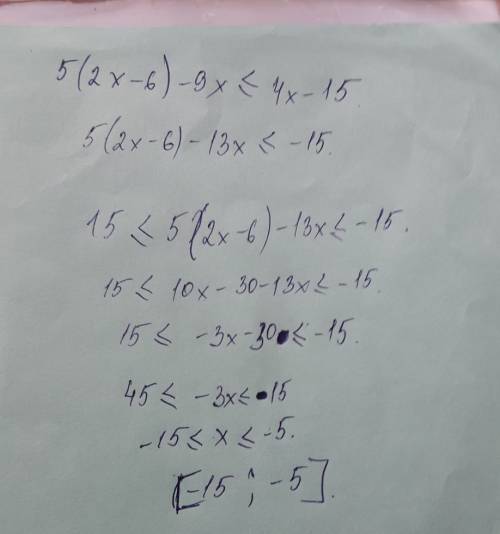 5(2x-6)-9x ≤ 4x-15
5(2x-6)-13x ≤ -15.
15 ≤ 5(2x-6)-13x ≤ -15.
15 ≤ 10x-30-13x ≤ -15.
15 ≤ -3x-30 ≤ -15.
45 ≤ -3x ≤ 15
-15 ≤ x ≤ -5.
[-15 ; -5].